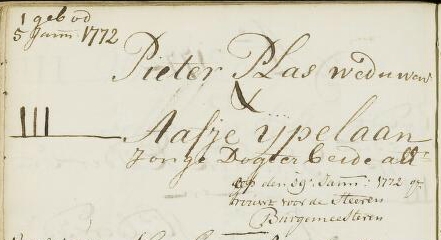 1 gebod
5 Janri 1772
Pieter Plas weduwen
&
III
Aafje ypelaan
Jonge Dogter beide alh
op den 19e Janri: 1772 ge
trouwt voor de Heeren
Burgemeesteren